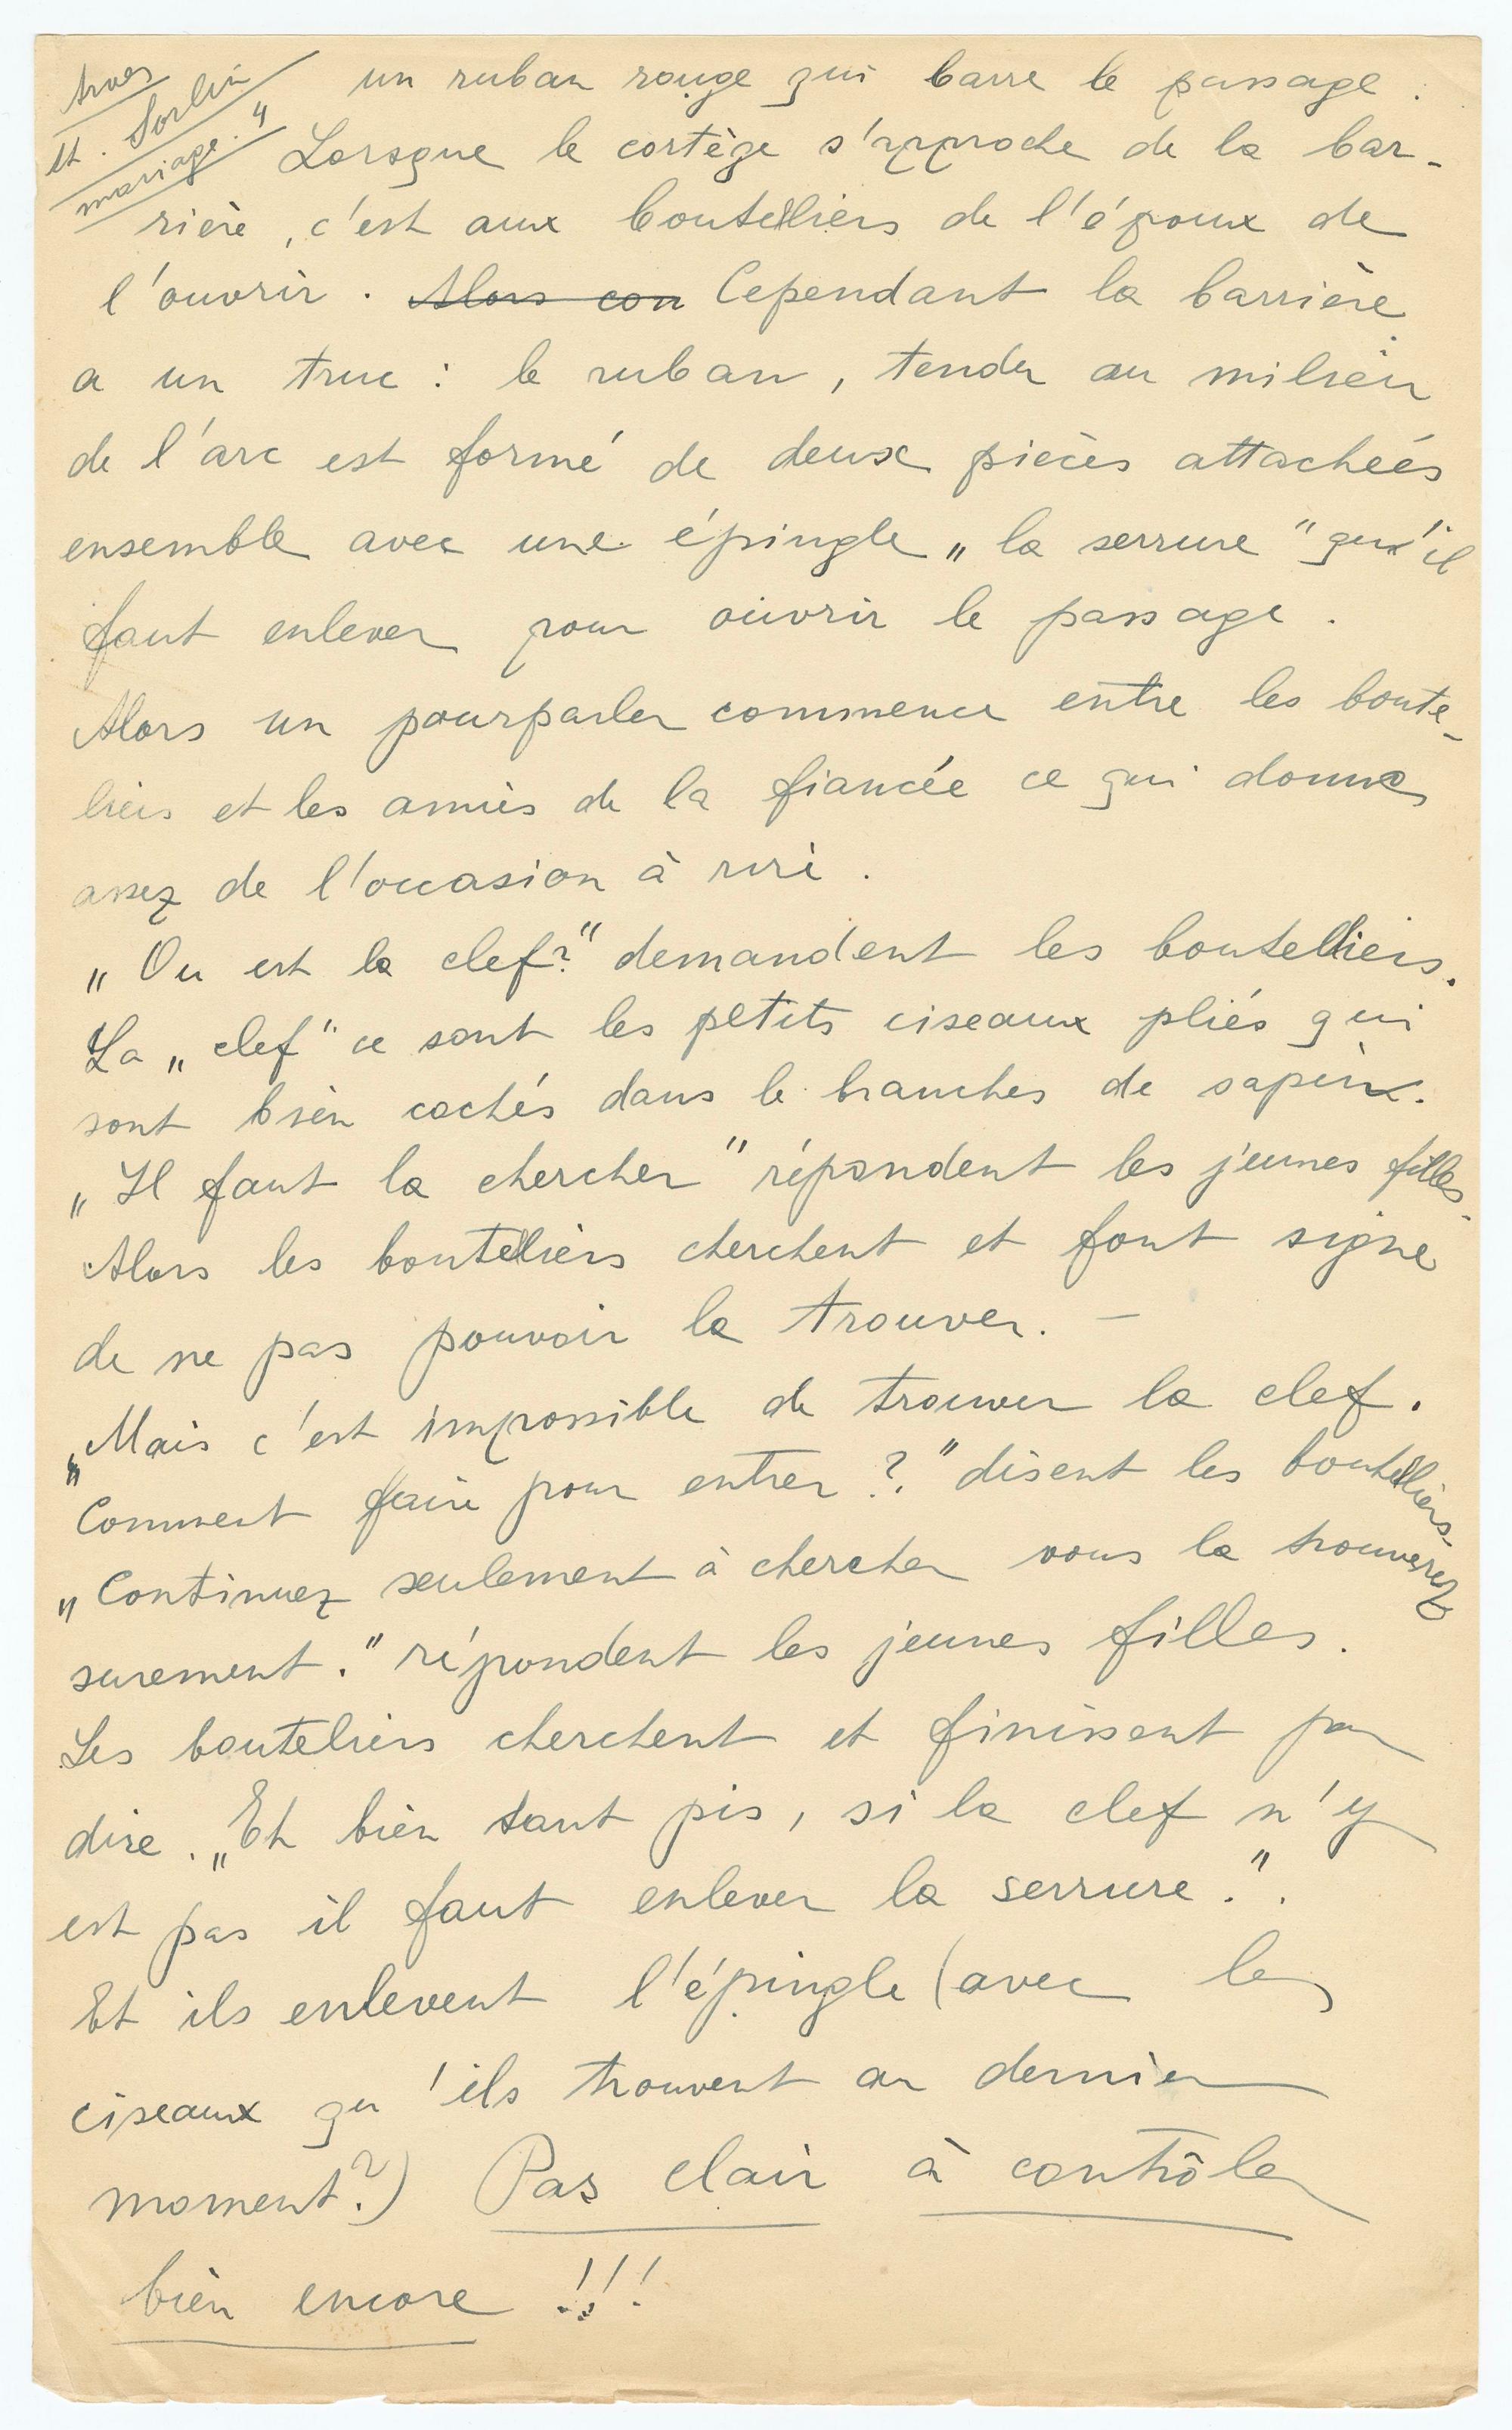 Arves
St. Sorlin
mariage. 4
un ruban rouge qui barre le passage.
Lorsque le cortège s'approche de la bar-
rière, c'est aux bouteilliers de l'époux de
l'ouvrir. ~~Alors con~~ Cependant la barrière
a un truc : le ruban, tendu au milieu
de l'arc est formé de deux pièces attachées
ensemble avec une épingle „la serrure" qu'il
faut enlever pour ouvrir le passage.
Alors un pourparler commence entre les boute-
liers et les amies de la fiancée ce qui donne
assez de l'occasion à rire.
„Ou est la clef?" demandent les boutelliers.
La „clef" ce sont les petits ciseaux pliés qui
sont bien cachés dans le branches de sapin.
„Il faut la chercher" répondent les jeunes filles.
Alors les boutelliers cherchent et font signe
de ne pas pouvoir la trouver. —
„Mais c'est impossible de trouver la clef.
Comment faire pour entrer ?" disent les boutelliers.
„Continuez seulement à chercher vous la trouverez
surement." répondent les jeunes filles.
Les bouteliers cherchent et finissent par
dire. „Eh bien tant pis, si la clef n'y
est pas il faut enlever la serrure.".
Et ils enlevent l'épingle (avec les
ciseaux qu'ils trouvent au dernier
moment?) Pas clair à contrôler
bien encore !!!